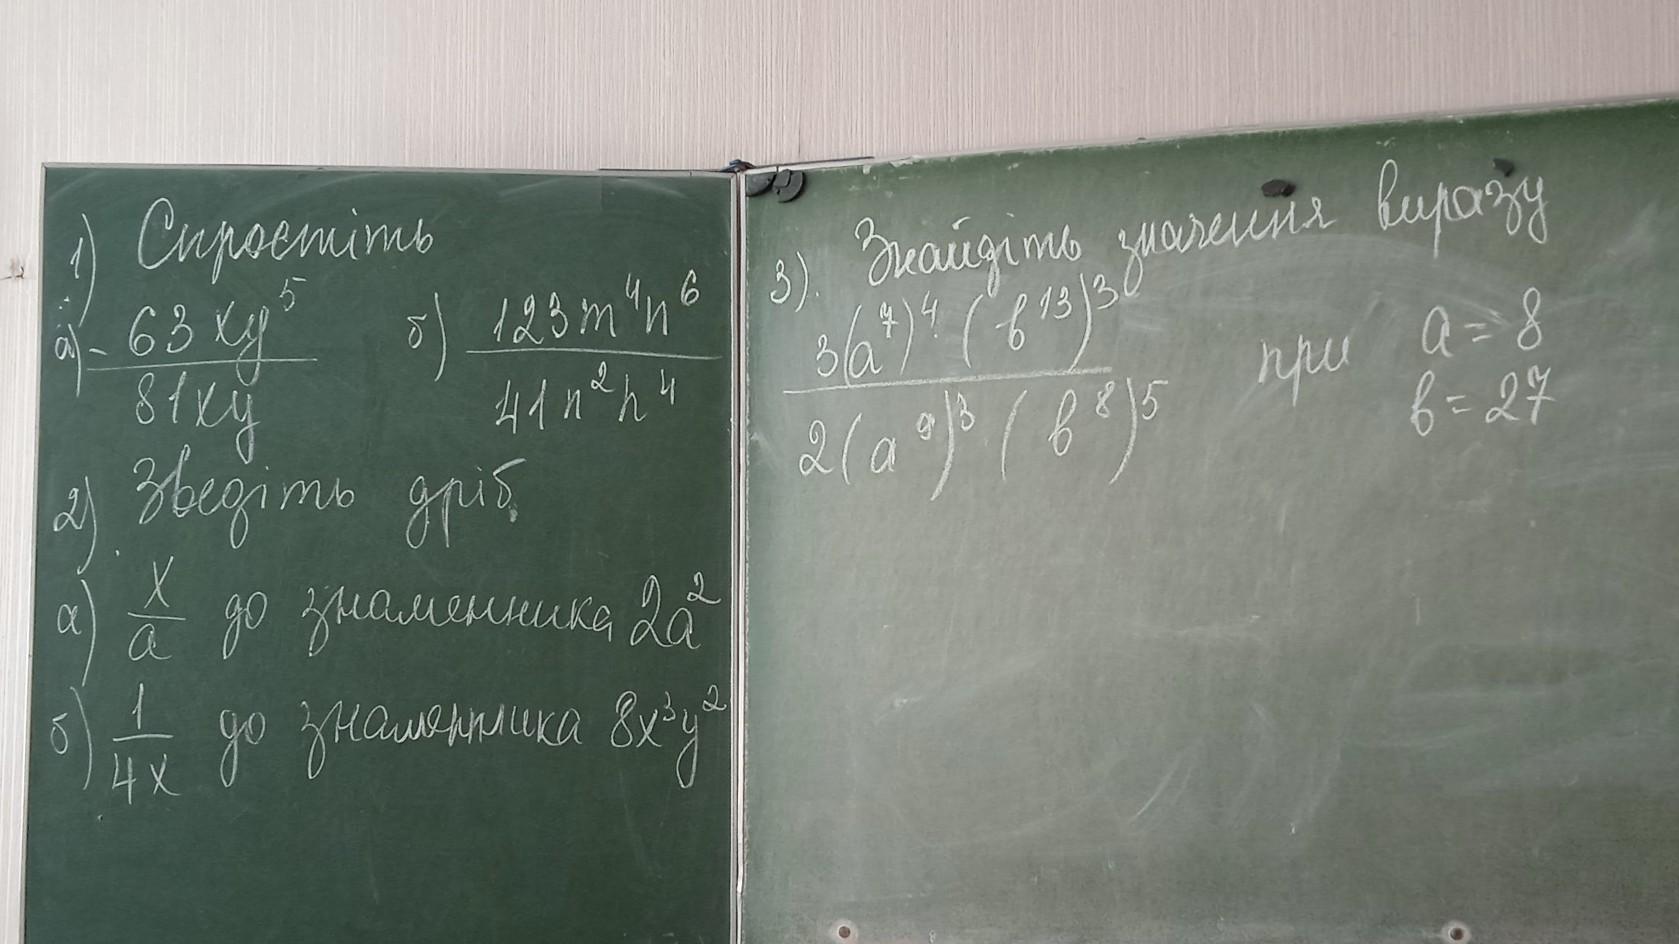 1) Спростіть
а) - 63xy⁵ / 81xy б) 123m⁴n⁶ / 41n²n⁴
2) Зведіть дріб
а) x / a до знаменника 2a²
б) 1 / 4x до знаменника 8x³y²
3). Знайдіть значення виразу
3(a⁷)⁴ (b¹³)³ / 2(a⁹)³ (b⁸)⁵ при a = 8
b = 27